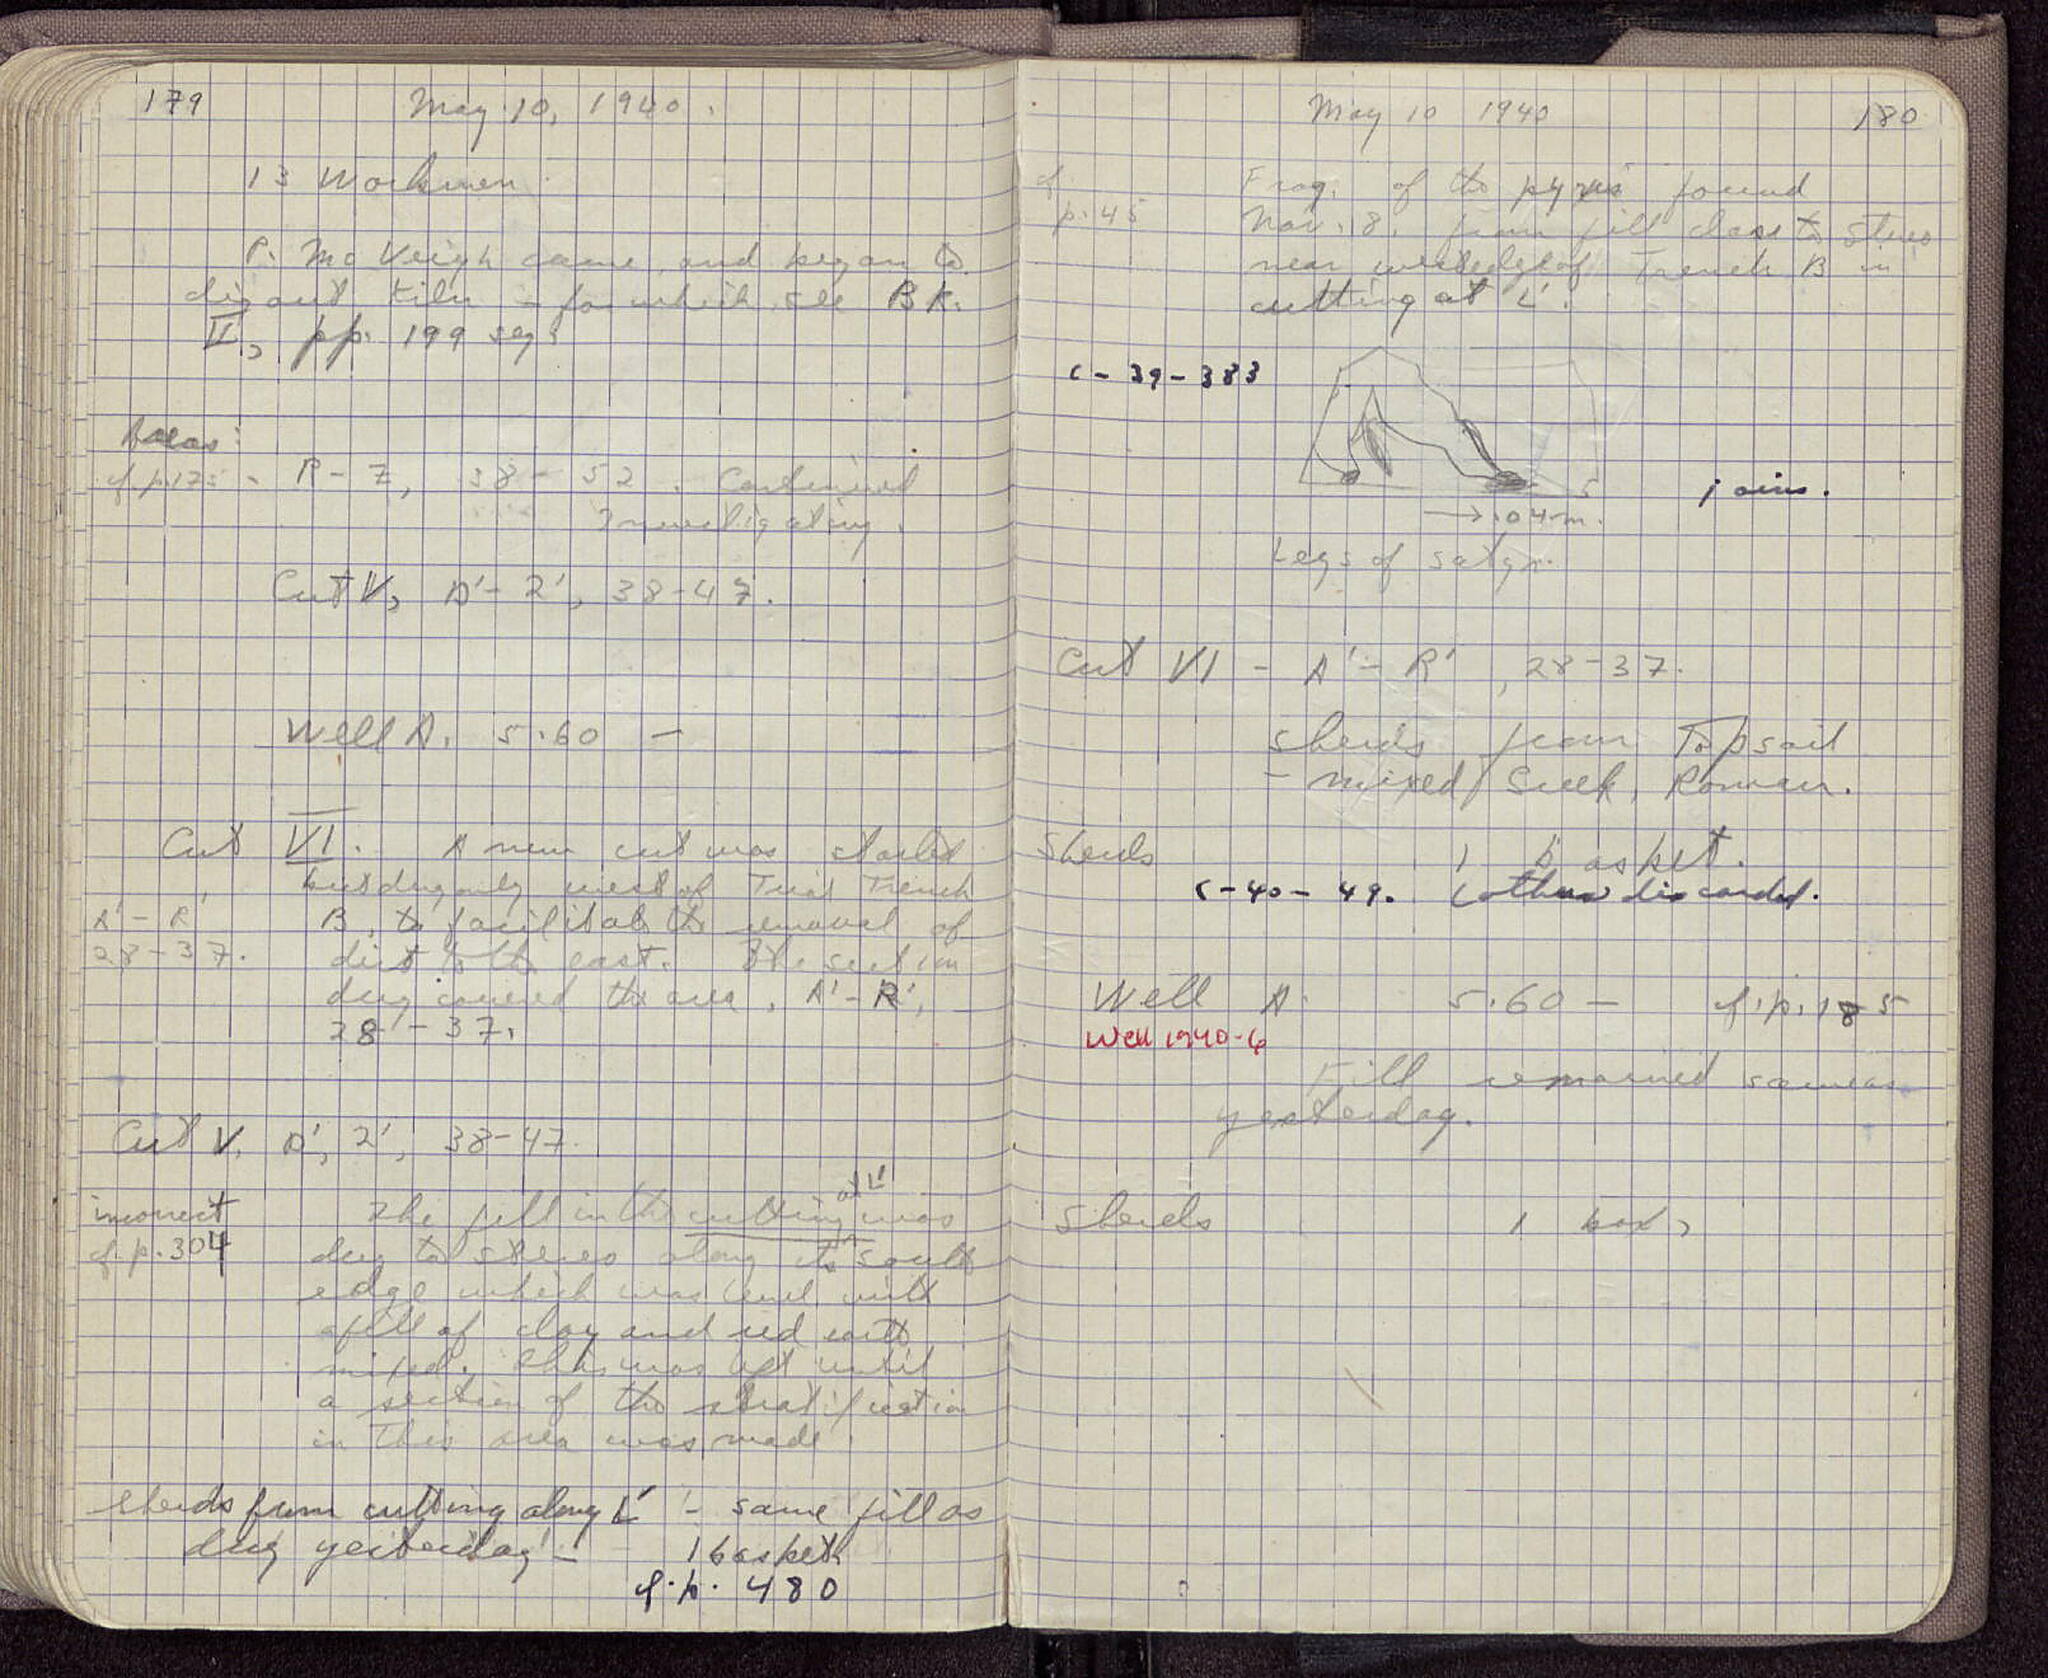 179 May 10, 1940.
13 Workmen.
P. McVeigh came and began to
dig out kiln - for which see BK.
II, pp. 199 seq.
Areas:
cf. p. 175 - R-Z, 38-52. Continued
investigating.
Cut V, A'-2', 38-47.
Well A. 5.60 -
Cut VI. A new cut was started
but dug only west of Trial Trench
A'-R' B, to facilitate the removal of
28-37. dirt to the east. The section
dug covered the area, A'-R',
28-37.
Cut V. A', 2', 38-47.
at L'
incorrect The fill in the cutting was
cf. p. 304 dug to stereo along its south
edge which was level with
a fill of clay and red earth
mixed. This was left until
a section of the stratification
in this area was made.
sherds from cutting along L' - same fill as
dug yesterday - 1 basket
cf. p. 480
May 10 1940 180
cf. Frag. of the pyxis found
p. 45 Nov. 8. from fill close to stereo
near west edge of Trench B in
cutting at L'.
C-39-383
joins.
→ .04 m.
Legs of satyr.
Cut VI - A'-R', 28-37.
sherds from Topsoil
- mixed Greek, Roman.
Sherds 1 basket.
C-40-49. (others discarded.
Well A. 5.60 - cf. p. 185
Well 1940-6
Fill remained same as
yesterday.
Sherds 1 box,